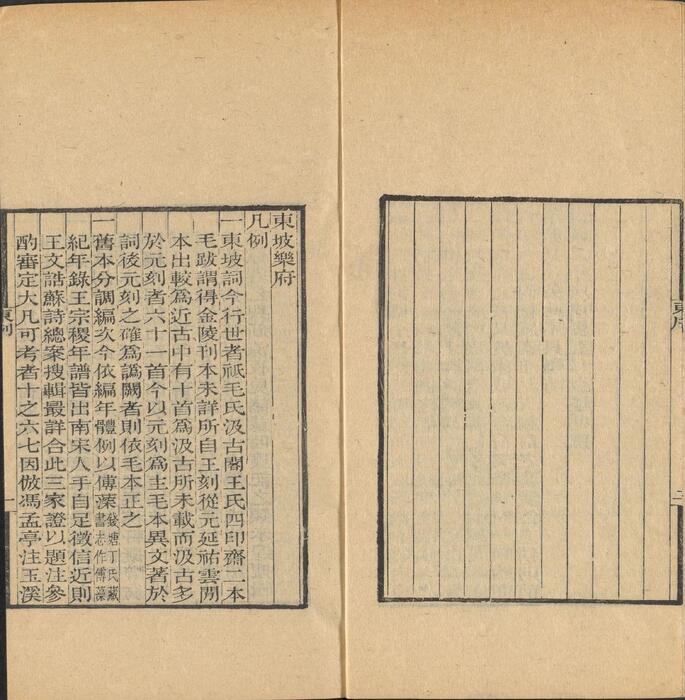 東坡樂府
凡例
一東坡詞今行世者祇毛氏汲古閣王氏四印齋二本
毛跋謂得金陵刊本未詳所自王刻從元延祐雲間
本出較爲近古中有十首爲汲古所未載而汲古多
於元刻者六十一首今以元刻爲主毛本異文著於
詞後元刻之確爲譌闕者則依毛本正之
一舊本分調編次今依編年體例以傅藻錢塘丁氏藏書志作傅藻
紀年錄王宗稷年譜皆出南宋人手自足徵信近則
王文誥蘇詩總案搜輯最詳合此三家證以題注參
酌審定大凡可考者十之六七因倣馮孟亭注玉溪
東例
一
東序
二